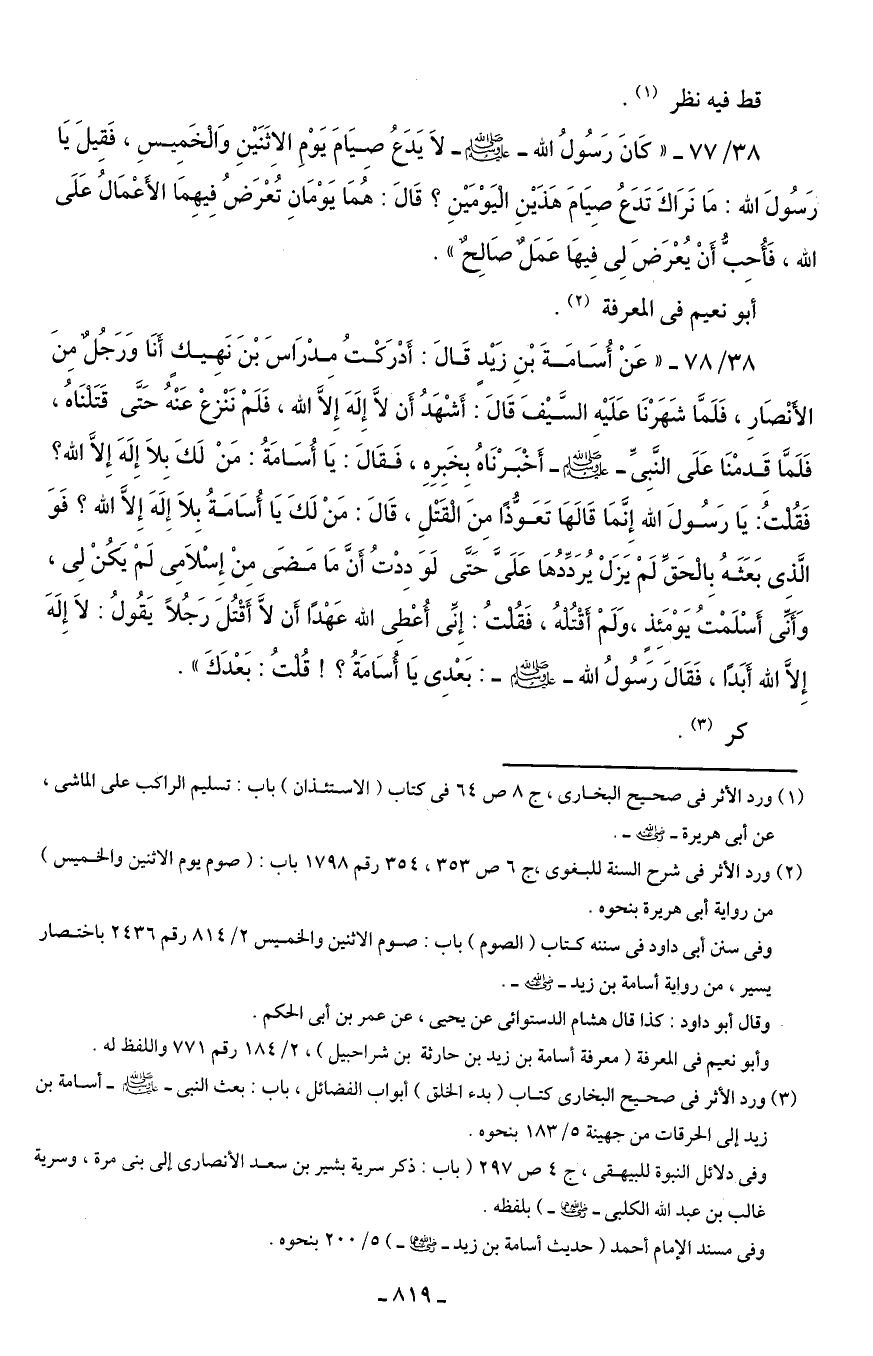 قط فيه نظر (١) .
٣٨/ ٧٧ ـ « كَانَ رَسُولُ الله ـ ﷺ ـ لاَ يَدَعُ صِيَامَ يَوْمِ الإِثْنَيْنِ وَالْخَمِيسِ ، فَقِيلَ يَا
رَسُولَ الله : مَا نَرَاكَ تَدَعُ صِيَامَ هَذَيْنِ الْيَوْمَيْنِ ؟ قَالَ : هُمَا يَوْمَانِ تُعْرَضُ فِيهِمَا الأَعْمَالُ عَلَى
الله ، فَأُحِبُّ أَنْ يُعْرَضَ لِى فِيهَا عَمَلٌ صَالِحٌ » .
أبو نعيم فى المعرفة (٢) .
٣٨/ ٧٨ ـ « عَنْ أُسَامَةَ بْنِ زَيْدٍ قَالَ : أَدْرَكْتُ مِدْرَاسَ بْنَ نَهِيكٍ أَنَا وَرَجُلٌ مِنَ
الأَنْصَارِ ، فَلَمَّا شَهَرْنَا عَلَيْهِ السَّيْفَ قَالَ : أَشْهَدُ أَن لاَّ إِلَهَ إِلاَّ الله ، فَلَمْ نَنْزِعْ عَنْهُ حَتَّى قَتَلْنَاهُ ،
فَلَمَّا قَدِمْنَا عَلَى النَّبِىِّ ـ ﷺ ـ أَخْبَرْنَاهُ بِخَبَرِهِ ، فَقَالَ : يَا أُسَامَةُ : مَنْ لَكَ بِلاَ إِلَهَ إِلاَّ الله؟
فَقُلْتُ: يَا رَسُولَ الله إِنَّمَا قَالَهَا تَعَوُّذًا مِنَ الْقَتْلِ ، قَالَ : مَنْ لَكَ يَا أُسَامَةُ بِلاَ إِلَهَ إِلاَّ الله ؟ فَوَ
الَّذِى بَعَثَهُ بِالْحَقِّ لَمْ يَزَلْ يُرَدِّدُهَا عَلَىَّ حَتَّى لَوَدِدْتُ أَنَّ مَا مَضَى مِنْ إِسْلاَمِى لَمْ يَكُنْ لِى ،
وَأَنِّى أَسْلَمْتُ يَوْمَئِذٍ ،وَلَمْ أَقْتُلْهُ ، فَقُلْتُ : إِنِّى أُعْطِى الله عَهْدًا أَن لاَّ أَقْتُلَ رَجُلاً يَقُولُ : لاَ إِلَهَ
إِلاَّ الله أَبَدًا ، فَقَالَ رَسُولُ الله ـ ﷺ ـ : بَعْدِى يَا أُسَامَةُ ؟ ! قُلْتُ : بَعْدَكَ » .
كر (٣) .
(١) ورد الأثر فى صحيح البخارى ، ج ٨ ص ٦٤ فى كتاب ( الاستئذان ) باب : تسليم الراكب على الماشى ،
عن أبى هريرة ـ رضي الله عنه ـ .
(٢) ورد الأثر فى شرح السنة للبغوى ،ج ٦ ص ٣٥٣ ، ٣٥٤ رقم ١٧٩٨ باب : ( صوم يوم الاثنين والخميس )
من رواية أبى هريرة بنحوه .
وفى سنن أبى داود فى سننه كتاب ( الصوم ) باب : صوم الاثنين والخميس ٢/ ٨١٤ رقم ٢٤٣٦ باختصار
يسير ، من رواية أسامة بن زيد ـ رضي الله عنه ـ .
وقال أبو داود : كذا قال هشام الدستوائى عن يحيى ، عن عمر بن أبى الحكم .
وأبو نعيم فى المعرفة ( معرفة أسامة بن زيد بن حارثة بن شراحبيل ) ، ٢/ ١٨٤ رقم ٧٧١ واللفظ له .
(٣) ورد الأثر فى صحيح البخارى كتاب ( بدء الخلق ) أبواب الفضائل ، باب : بعث النبى ـ ﷺ ـ أسامة بن
زيد إلى الحرقات من جهينة ٥/ ١٨٣ بنحوه .
وفى دلائل النبوة للبيهقى ، ج ٤ ص ٢٩٧ ( باب : ذكر سرية بشير بن سعد الأنصارى إلى بنى مرة ، وسرية
غالب بن عبد الله الكلبى ـ رضي الله عنهما ـ ) بلفظه .
وفى مسند الإمام أحمد ( حديث أسامة بن زيد ـ رضي الله عنهما ـ ) ٥/ ٢٠٠ بنحوه .
ـ ٨١٩ ـ